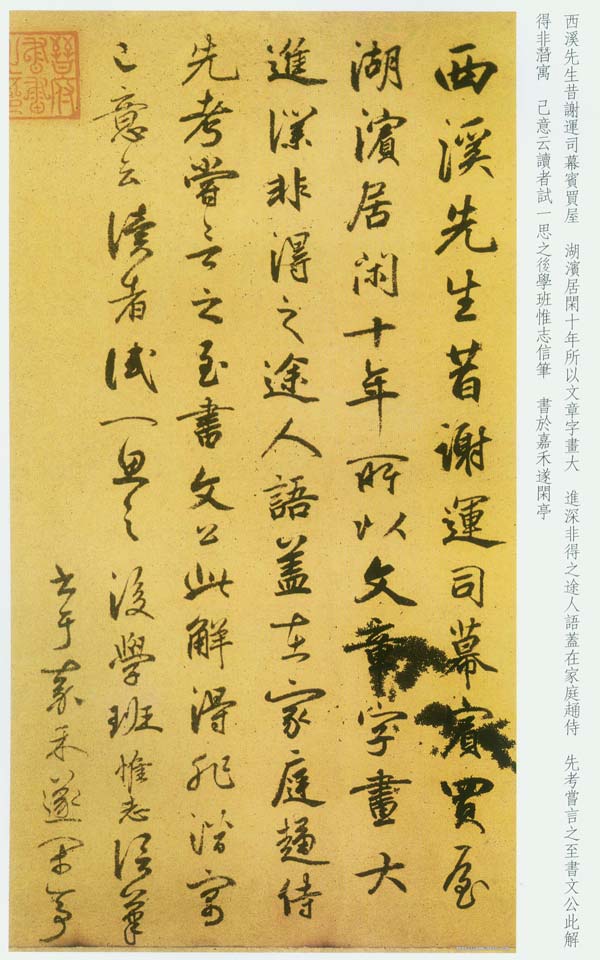 西溪先生昔謝運司幕賓買屋　湖濱居閑十年所以文章字畫大　進深非得之途人語蓋在家庭趨侍　先考嘗言之至書文公此解
得非潛寓　己意云讀者試一思之後學班惟志信筆　書於嘉禾遂閑亭
西溪先生昔謝運司幕賓買屋
湖濱居閑十年所以文章字畫大
進深非得之途人語蓋在家庭趨侍
先考嘗言之至書文公此解得非潛寓
己意云讀者試一思之　後學班惟志信筆
書于嘉禾遂閑亭